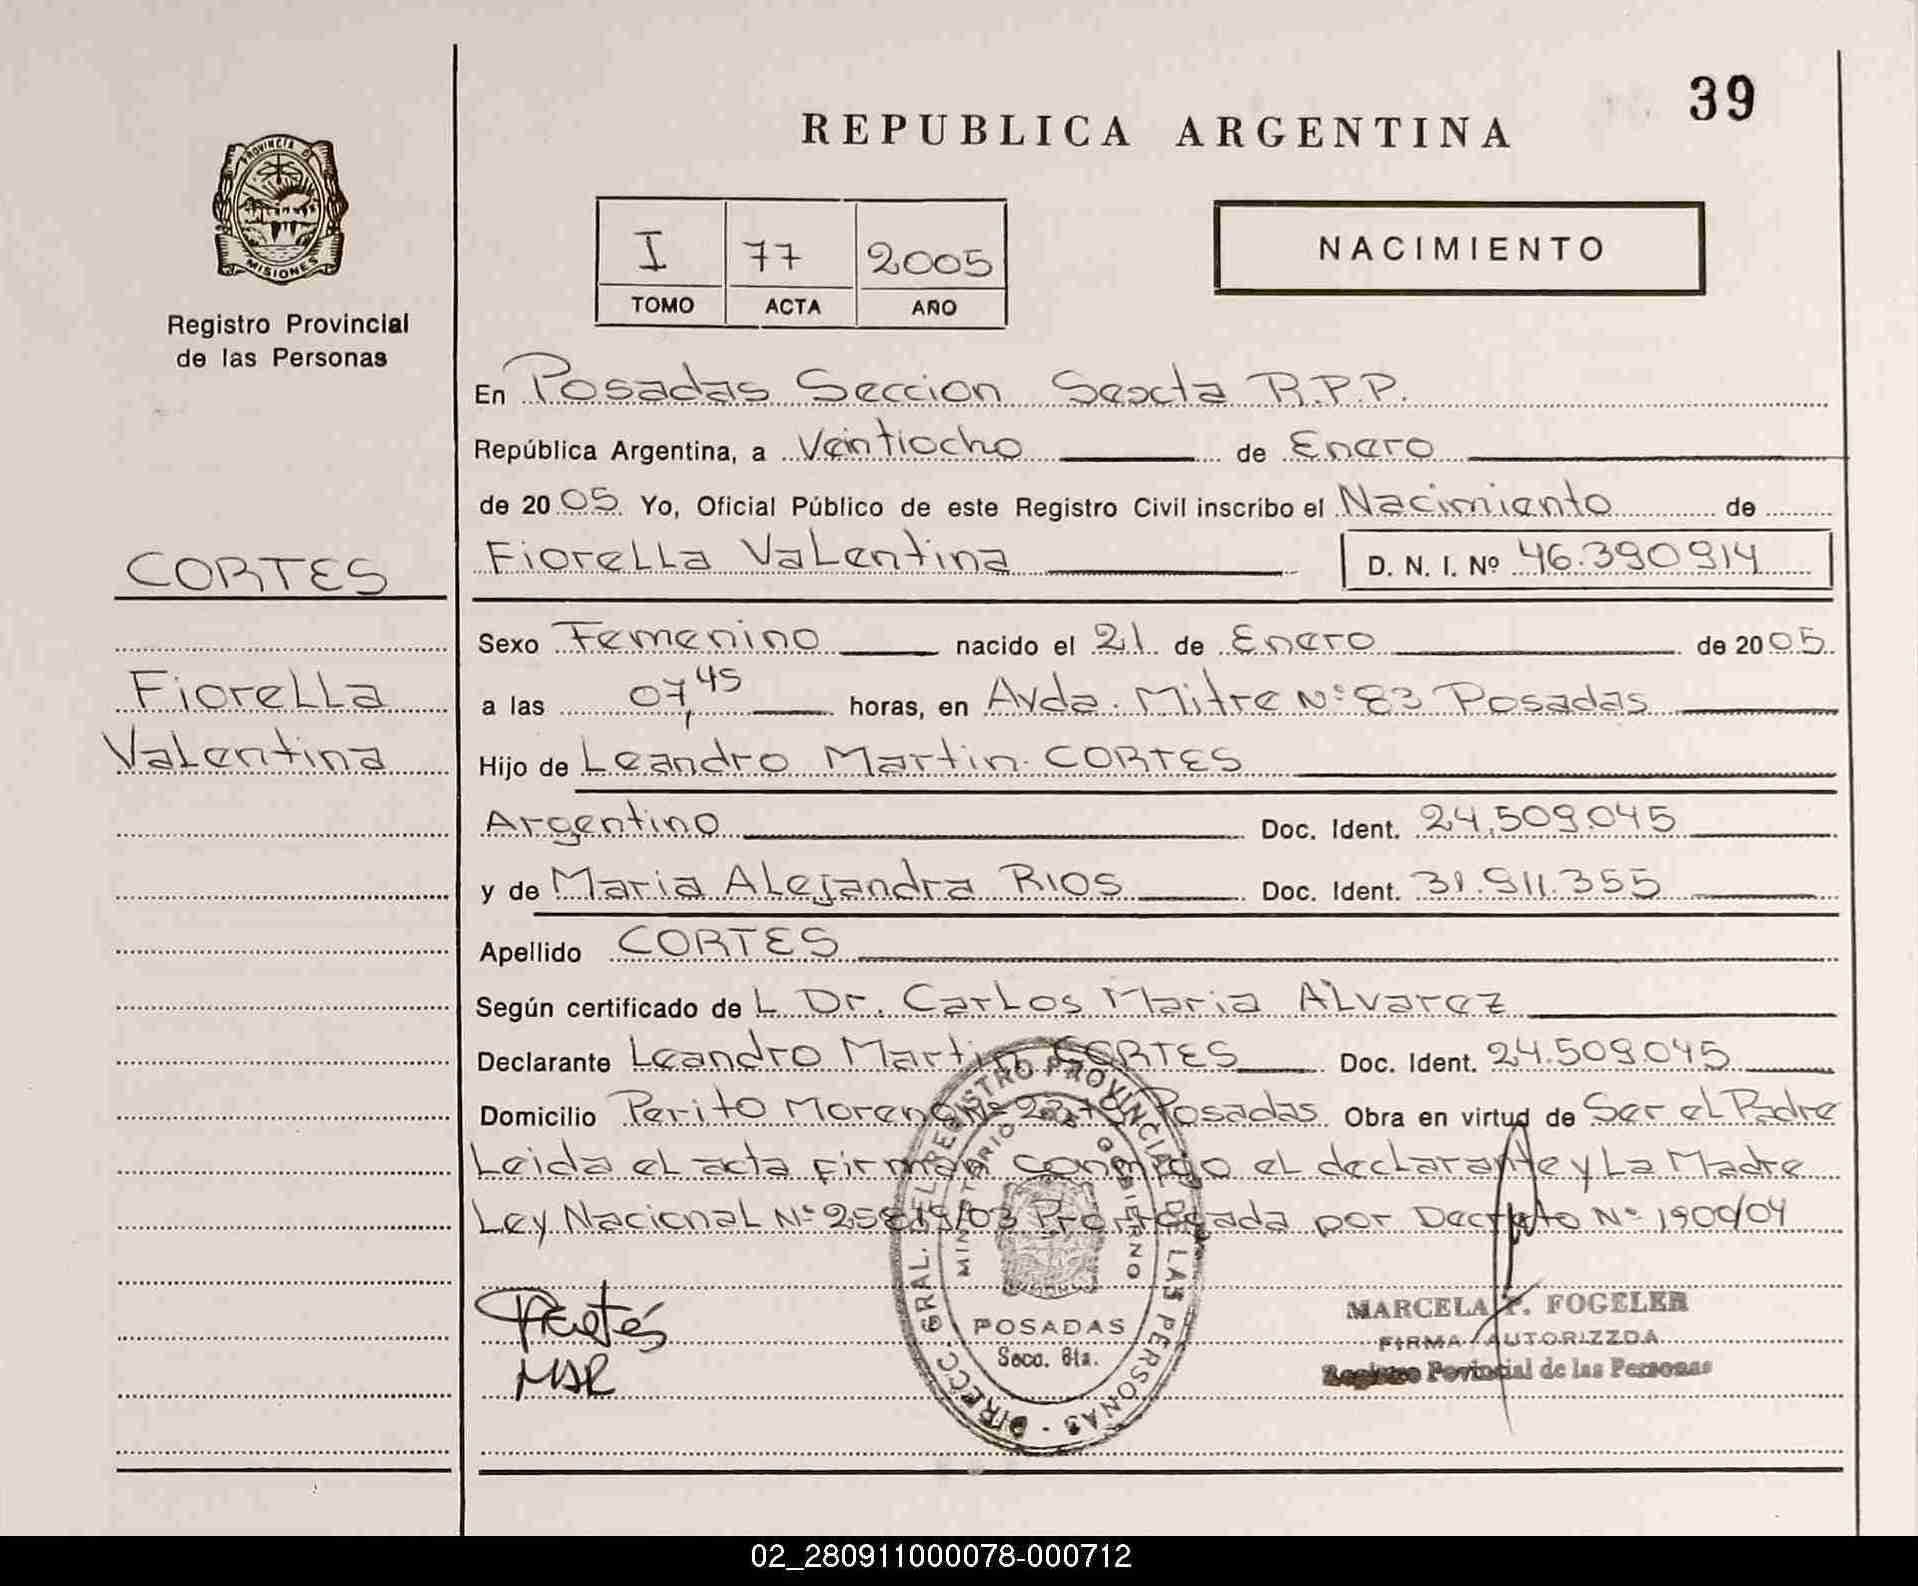 39
REPUBLICA ARGENTINA
PROVINCIA DE
MISIONES
Registro Provincial
de las Personas
I 77 2005
TOMO ACTA AÑO
NACIMIENTO
En Posadas Seccion Sexta R.P.P.
República Argentina, a Veintiocho de Enero
de 2005 Yo, Oficial Público de este Registro Civil inscribo el Nacimiento de
Fiorella Valentina D. N. I. Nº 46.390914
CORTES
Fiorella
Valentina
Sexo Femenino nacido el 21 de Enero de 2005
a las 07,45 horas, en Avda. Mitre Nº 83 Posadas
Hijo de Leandro Martin CORTES
Argentino Doc. Ident. 24.509.045
y de Maria Alejandra RIOS Doc. Ident. 31.911.355
Apellido CORTES
Según certificado de L Dr. Carlos Maria Alvarez
Declarante Leandro Martin CORTES Doc. Ident. 24.509.045
Domicilio Perito Moreno Nº Posadas Obra en virtud de Ser el Padre
Leida el acta firman conmigo el declarante y La Madre
Ley Nacional Nº 25819/03 Prorrogada por Decreto Nº 1900/04
DIRECC. GRAL. DEL REGISTRO PROVINCIAL DE LAS PERSONAS
MINISTERIO DE GOBIERNO
POSADAS
Secc. 6ta.
Cortés
MAR
MARCELA P. FOGELER
FIRMA AUTORIZZDA
Registro Povincial de las Personas
02_280911000078-000712